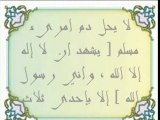 لا يحل دم امرىء
مسلم [ يشهد أن لا إله
إلا الله ، وأني رسول
الله ] إلا بإحدى ثلاث